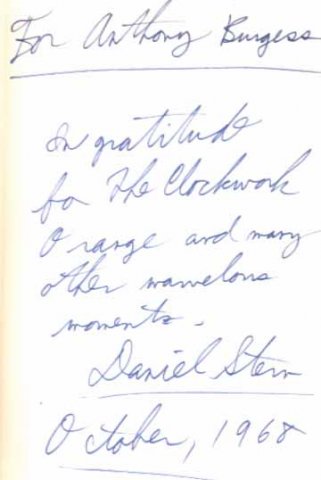 For Anthony Burgess
In gratitude
for The Clockwork
Orange and many
other marvelous
moments.
Daniel Stern
October, 1968